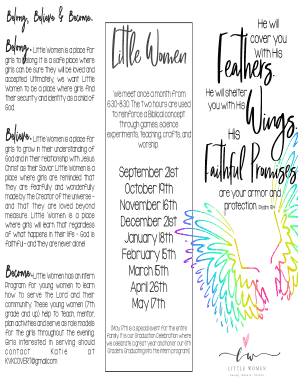 Belong, Believe & Become.
Belong. Little Women is a place for
girls to belong. It is a safe place where
girls can be sure they will be loved and
accepted. Ultimately, we want Little
Women to be a place where girls find
their security and identity as a child of
God.
Believe. Little Women is a place for
girls to grow in their understanding of
God and in their relationship with Jesus
Christ as their Savior. Little Women is a
place where girls are reminded that
they are fearfully and wonderfully
made by the Creator of the universe -
and that they are loved beyond
measure. Little Women is a place
where girls will learn that regardless
of what happens in their life - God is
Faithful - and they are never alone!
Become. Little Women has an Intern
Program for young women to learn
how to serve the Lord and their
community. These young women (7th
grade and up) help to teach, mentor,
plan activities and serve as role models
for the girls throughout the evening.
Girls interested in serving should
contact Katie at
KVKCOVERT@gmail.com
Little Women
We meet once a month from
6:30-8:30. The two hours are used
to reinforce a Biblical concept
through games, science
experiments, teaching, crafts, and
worship.
September 21st
October 19th
November 16th
December 21st
January 18th
February 15th
March 15th
April 26th
May 17th
(May 17th is a special event for the entire
Family. It is our Graduation Celebration where
we celebrate a great year and honor our 6th
Graders Graduating to the Intern program!)
He will
cover you
with His
Feathers.
He will shelter
you with His
Wings.
His
Faithful Promises
are your armor and
protection. Psalm 91:4
LW
LITTLE WOMEN